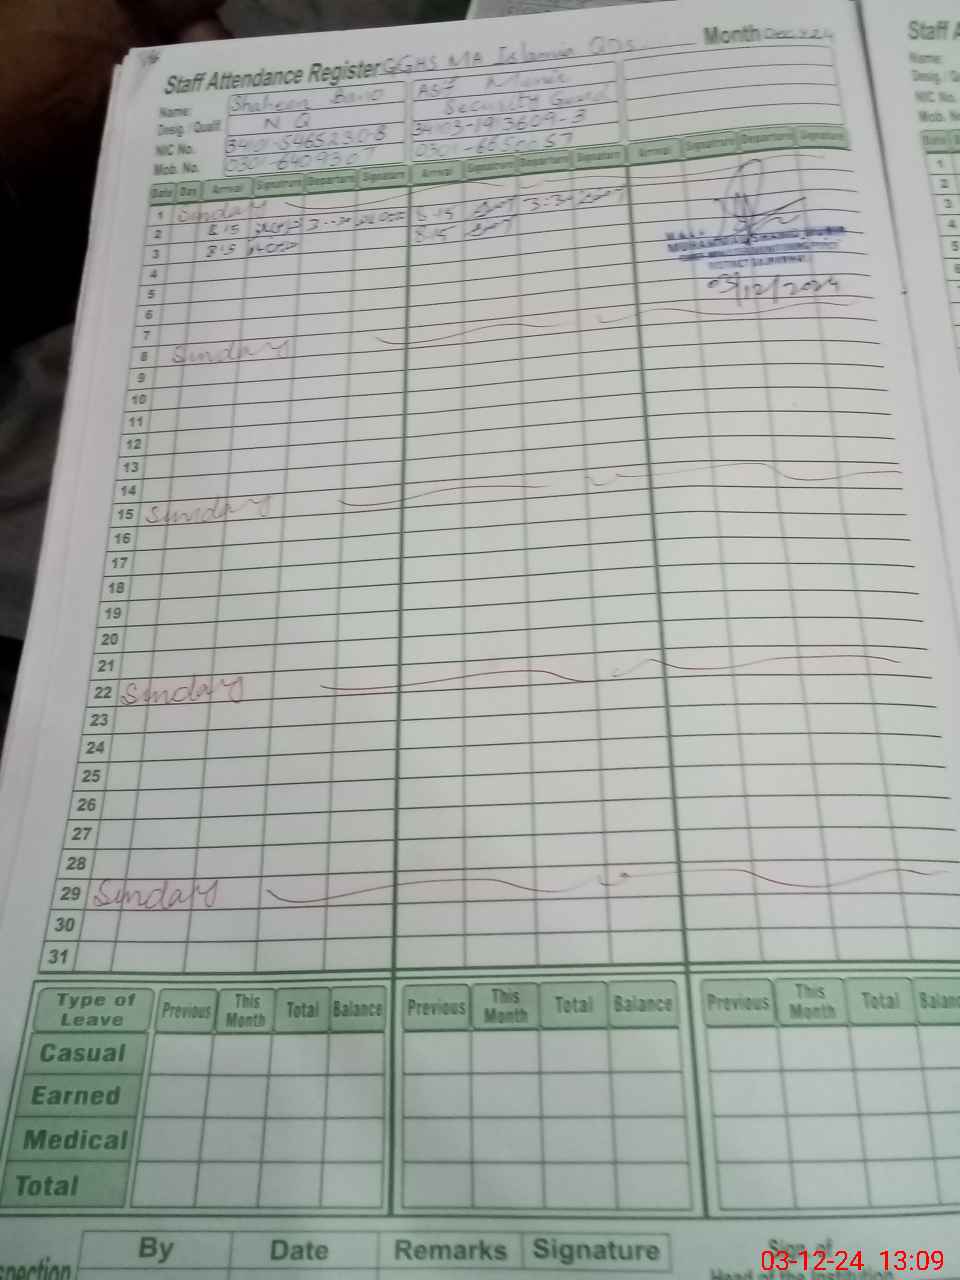 Staff Attendance Register GGHS MA Islamia QDS Month Dec. 24
Staff A
Name: Shaheen Bano Asif
Name:
Desig. / Qualif. N Q Security Guard
Desig. / Q
NIC No. 34101-5465230-8 34103-1913609-3
NIC No.
Mob. No. 0301-6409307 0301-6650057
Mob. N
Date Day Arrival Signature Departure Signature Arrival Signature Departure Signature Arrival Signature Departure Signature
1 Sunday
2 8.15 8-15 3-3
3 8.15 8-15
03/12/2024
4
5
6
7
8 Sunday
9
10
11
12
13
14
15 Sunday
16
17
18
19
20
21
22 Sunday
23
24
25
26
27
28
29 Sunday
30
31
1
2
3
4
5
6
Type of Leave Previous This Month Total Balance Previous This Month Total Balance Previous This Month Total Balanc
Casual
Earned
Medical
Total
By Date Remarks Signature Sign of
spection Head of the Institution
03-12-24 13:09